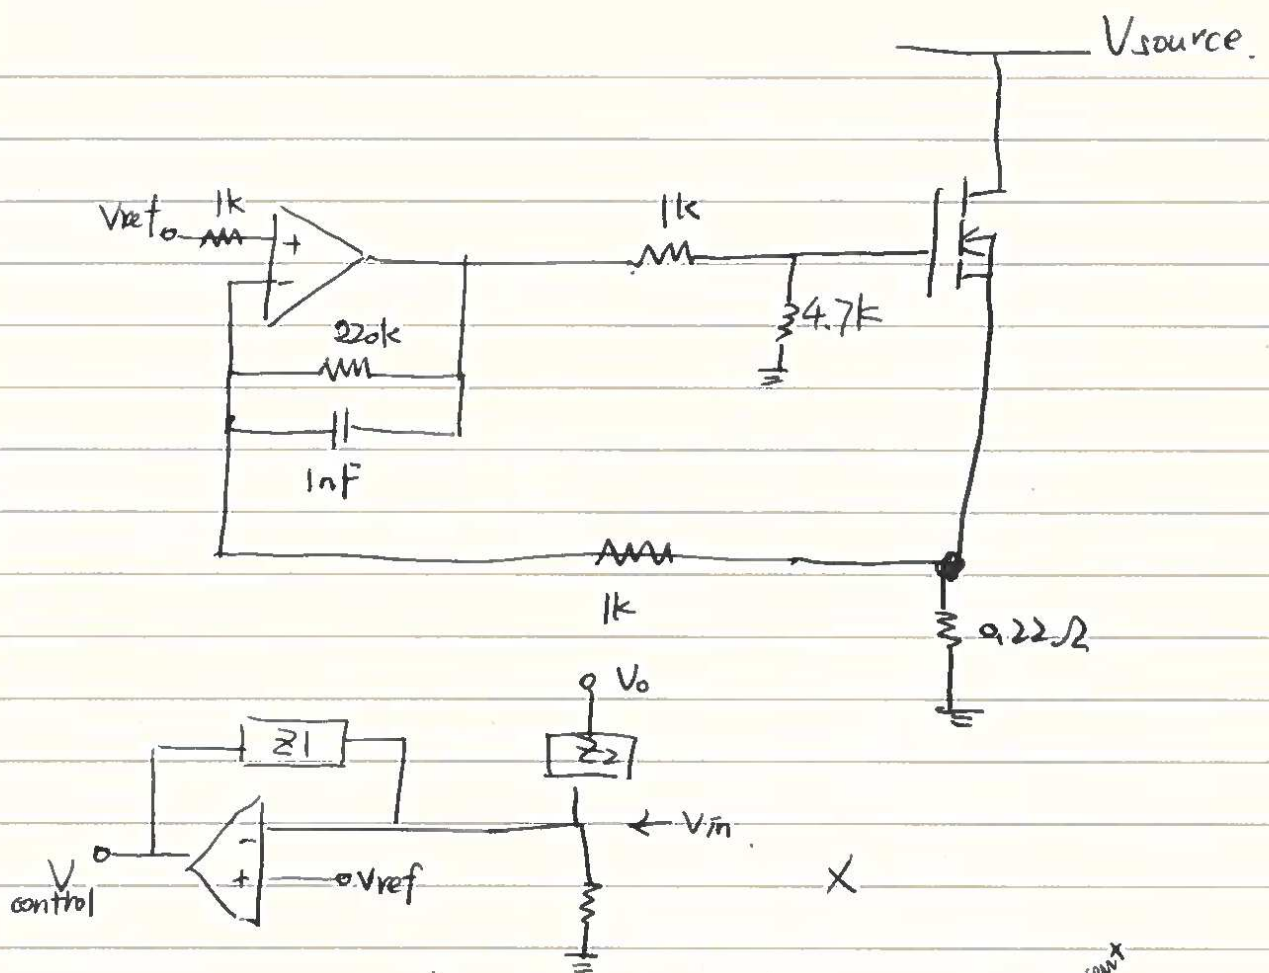 Vsource.
Vref
1k
+
-
1k
220k
4.7k
1nF
1k
0.22Ω
Vo
Z1
Z2
-
Vin
+
Vref
V control
X